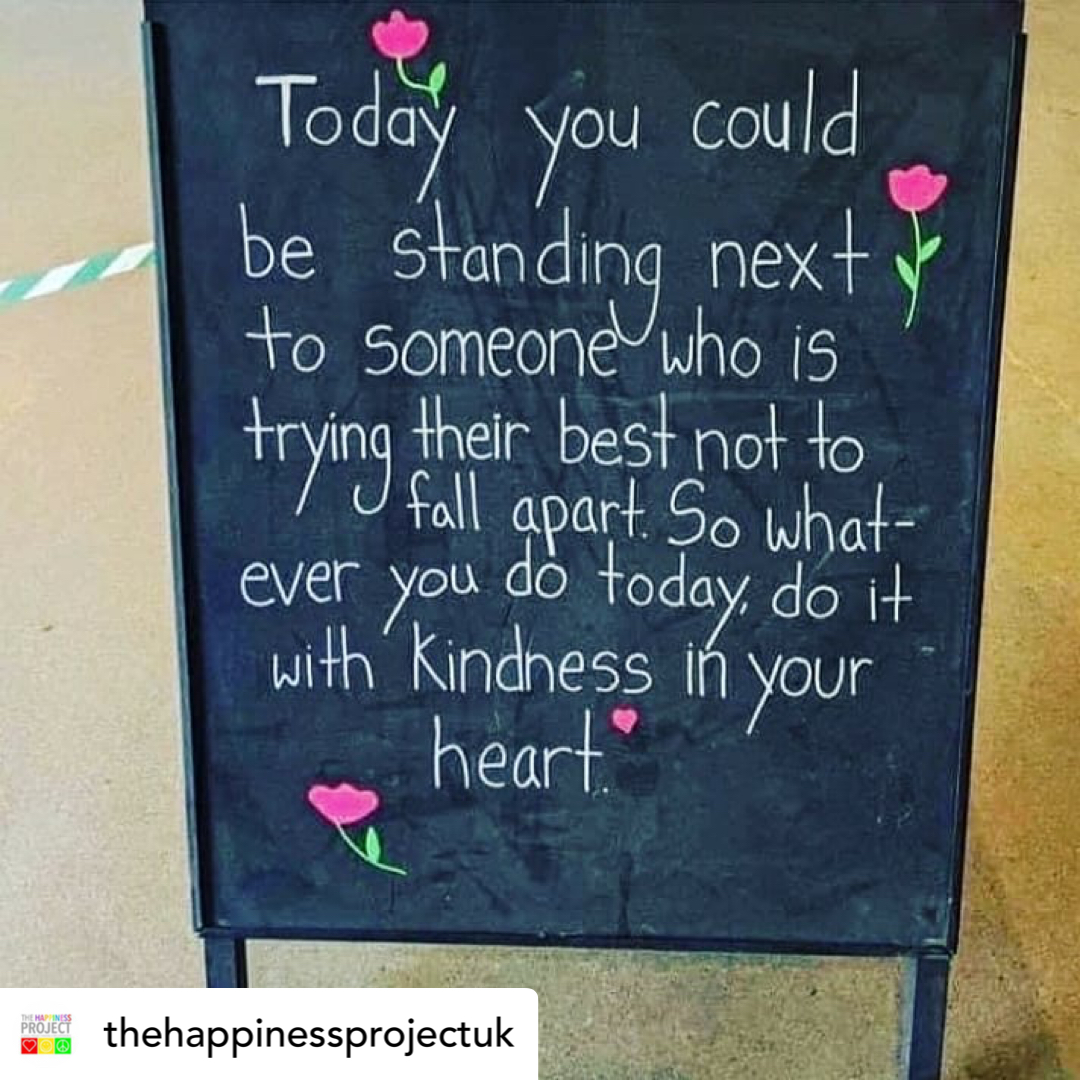 Today you could
be standing next
to someone who is
trying their best not to
fall apart. So what-
ever you do today, do it
with kindness in your
heart.
THE HAPPINESS
PROJECT
thehappinessprojectuk